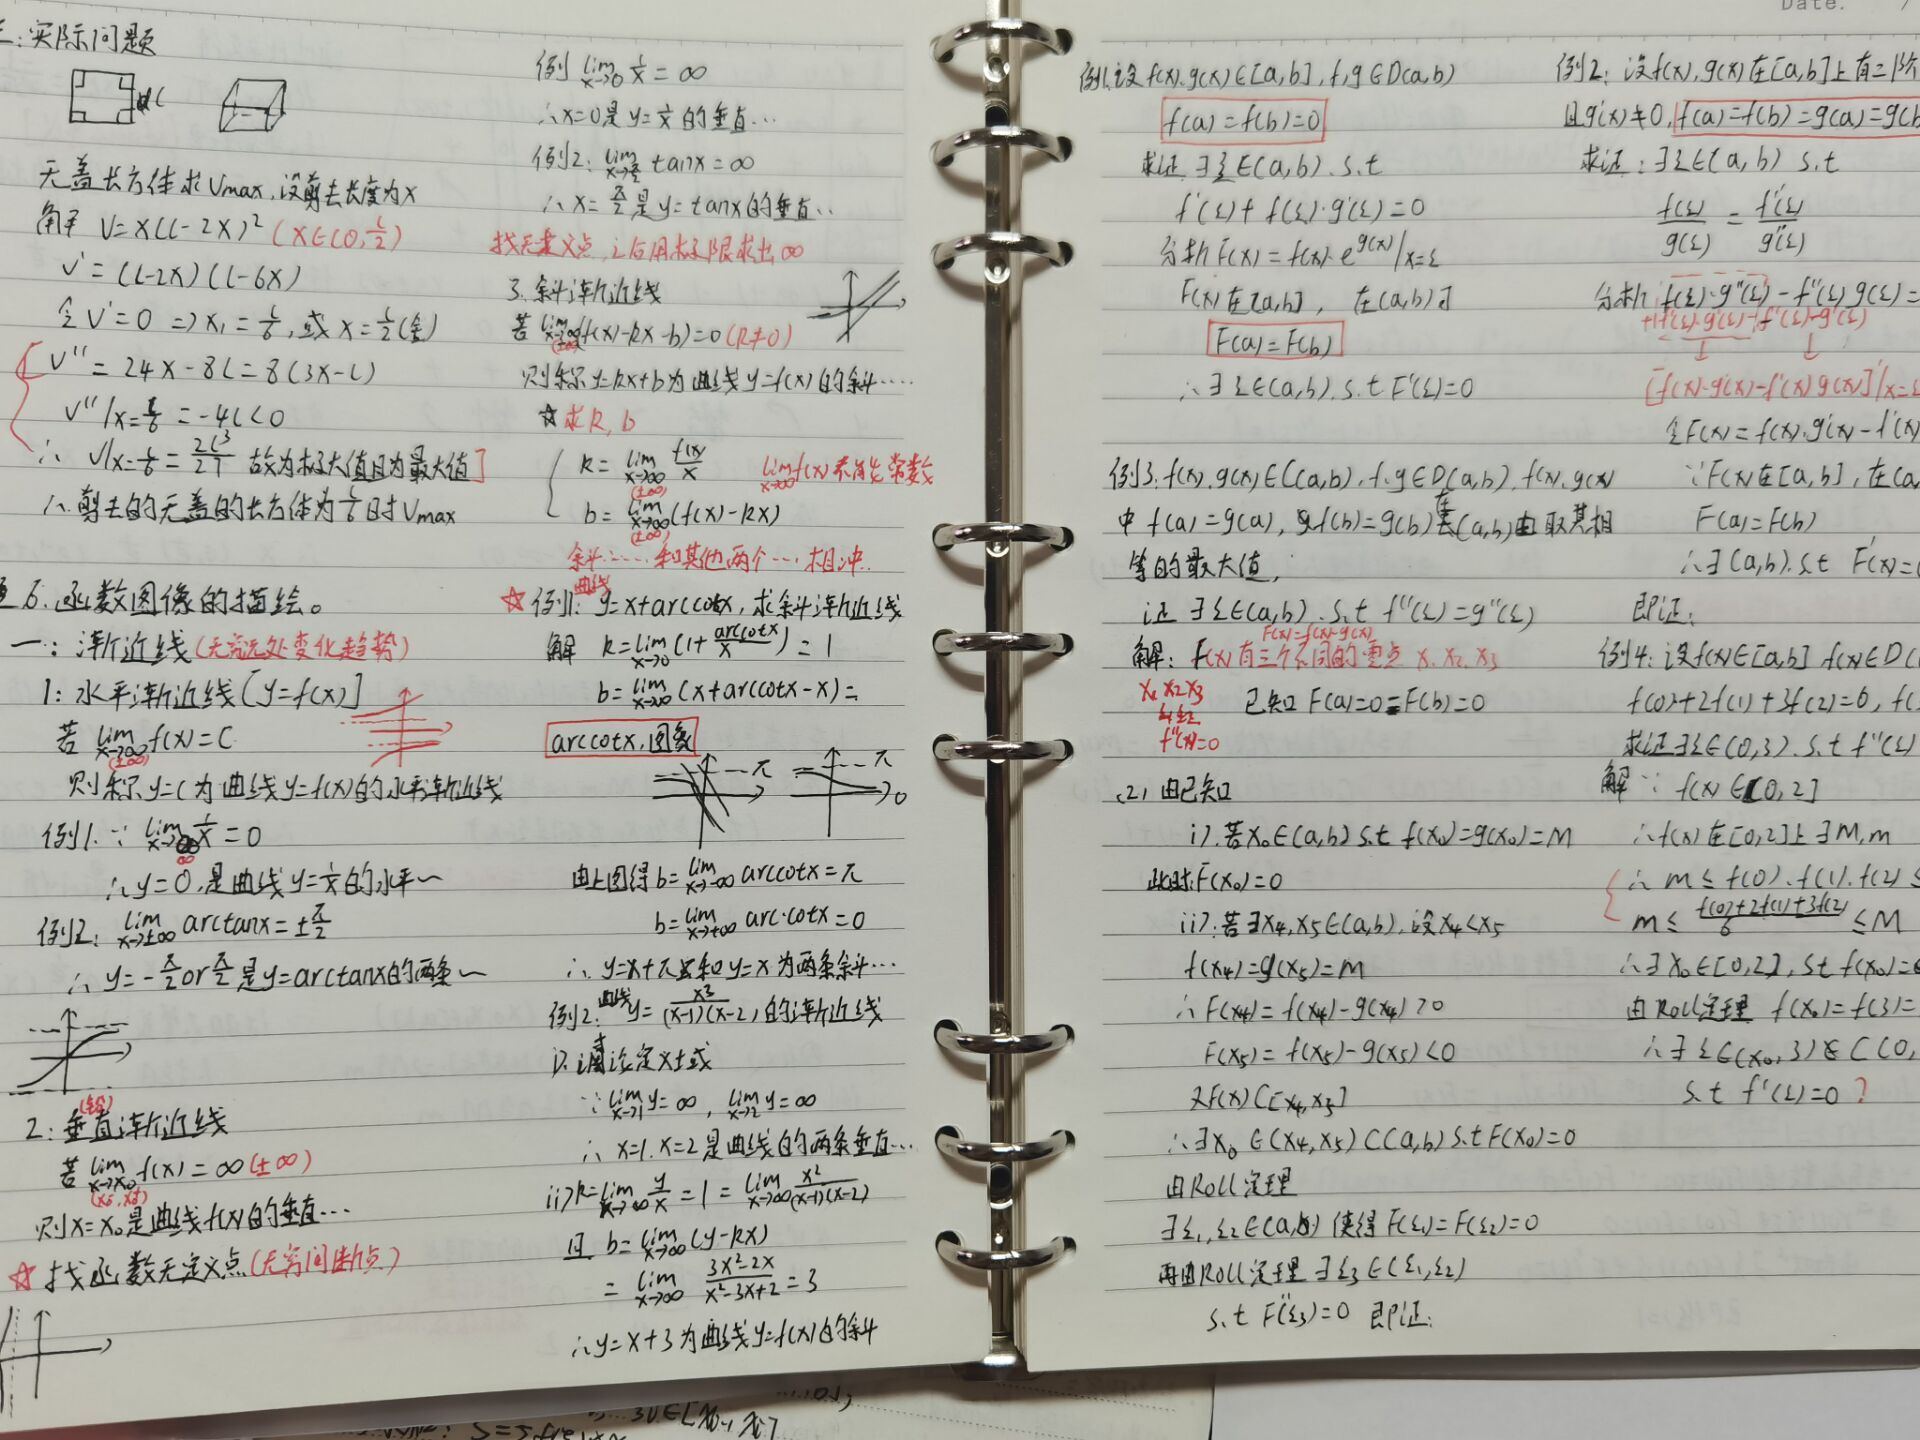 三:实际问题
无盖长方体求Vmax,设剪去长度为x
解 V=x(l-2x)² (x∈(0,l/2)
V'=(l-2x)(l-6x)
令V'=0 ⇒x₁=l/6,或x=l/2(舍)
V''=24x-8l=8(3x-l)
V''|x=l/6=-4l<0
∴ V|x=l/6=2l³/27 故为极大值且为最大值]
∴剪去的无盖的长方体为l/6时Vmax
6.函数图像的描绘。
一:渐近线(无穷远处变化趋势)
1:水平渐近线[y=f(x)]
若 lim x→∞ f(x)=C
(±∞)
则称y=C为曲线y=f(x)的水平渐近线
例1.∵ lim x→∞ 1/x=0
∴y=0,是曲线y=1/x的水平~
例2: lim x→±∞ arctanx=±π/2
∴y=-π/2 or π/2是y=arctanx的两条~
(铅)
2:垂直渐近线
若 lim x→x₀ f(x)=∞(±∞)
(x₀⁻,x₀⁺)
则x=x₀是曲线f(x)的垂直…
☆找函数无定义点(无穷间断点)
例 lim x→0 1/x=∞
∴x=0是y=1/x的垂直…
例2: lim x→π/2 tanx=∞
∴x=π/2是y=tanx的垂直..
找无定义点,之后用极限求出∞
3.斜渐近线
若 lim x→∞ (f(x)-kx-b)=0(k≠0)
(±∞)
则称y=kx+b为曲线y=f(x)的斜……
☆求k,b
k=lim x→∞ f(x)/x
(±∞)
lim x→∞ f(x)不能是常数
b=lim x→∞ (f(x)-kx)
(±∞)
斜……和其他两个…相冲.
☆例1:曲线y=x+arccotx,求斜渐近线
解 k=lim x→∞ (1+arccotx/x)=1
b=lim x→∞ (x+arccotx-x)=
arccotx.图象
π
π
0
由上图得b=lim x→-∞ arccotx=π
b=lim x→+∞ arc·cotx=0
∴y=x+π和y=x为两条斜…
例2:曲线y=x³/(x-1)(x-2)的渐近线
i).讨论定义域
∵lim x→1 y=∞,lim x→2 y=∞
∴x=1.x=2是曲线的两条垂直…
ii)k=lim x→∞ y/x=1=lim x→∞ x²/(x-1)(x-2)
且 b=lim x→∞ (y-kx)
=lim x→∞ 3x²-2x/x²-3x+2=3
∴y=x+3为曲线y=f(x)的斜
Date.
例1.设f(x).g(x)∈[a,b],f,g∈D(a,b)
f(a)=f(b)=0
求证 ∃ξ∈(a,b).s.t
f'(ξ)+f(ξ)·g'(ξ)=0
分析F(x)=f(x)·e^g(x)|x=ξ
F(x)在[a,b],在(a,b)可
F(a)=F(b)
∴∃ξ∈(a,b).s.t F'(ξ)=0
例3.f(x).g(x)∈C(a,b),f.g∈D(a,b).f(x).g(x)
中f(a)=g(a),f(b)=g(b)在(a,b)由取其相
等的最大值,
证 ∃ξ∈(a,b).s.t f''(ξ)=g''(ξ)
F(x)=f(x)-g(x)
解:F(x)有三个不同的零点 x₁ x₂ x₃
x₁ x₂ x₃
ξ₁ξ₂
f''(x)=0
已知F(a)=0=F(b)=0
(2)由已知
i).若x₀∈(a,b) s.t f(x₀)=g(x₀)=M
此时F(x₀)=0
ii).若∃x₄,x₅∈(a,b),设x₄<x₅
f(x₄)=g(x₅)=M
∴F(x₄)=f(x₄)-g(x₄)>0
F(x₅)=f(x₅)-g(x₅)<0
又F(x)C[x₄,x₅]
∴∃x₀∈(x₄,x₅)⊂(a,b) s.t F(x₀)=0
由Roll定理
∃ξ₁,ξ₂∈(a,b) 使得F'(ξ₁)=F'(ξ₂)=0
再由Roll定理∃ξ₃∈(ξ₁,ξ₂)
s.t F''(ξ₃)=0 即证:
例2:设f(x),g(x)在[a,b]上有二阶
且g'(x)≠0,f(a)=f(b)=g(a)=g(b
求证:∃ξ∈(a,b) s.t
f(ξ)/g(ξ)=f''(ξ)/g''(ξ)
分析f(ξ)·g''(ξ)-f''(ξ)g(ξ)=
+f'(ξ)·g'(ξ)-f'(ξ)-g'(ξ)
[f(x)·g'(x)-f'(x)g(x)]'|x=ξ
令F(x)=f(x).g'(x)-f'(x)
∵F(x)在[a,b],在(a
F(a)=F(b)
∴∃(a,b).s.t F'(x)=
即证:
例4:设f(x)∈[a,b] f(x)∈D(
f(0)+2f(1)+3f(2)=6,f(
求证∃ξ∈(0,3).s.t f''(ξ)
解∵ f(x)∈[0,2]
∴f(x)在[0,2]上∃M,m
∴m≤f(0).f(1).f(2)≤
m≤ f(0)+2f(1)+3f(2)/6 ≤M
∴∃x₀∈[0,2],s.t f(x₀)=
由Roll定理 f(x₀)=f(3)=
∴∃ξ∈(x₀,3)∈C(0,
s.t f'(ξ)=0?